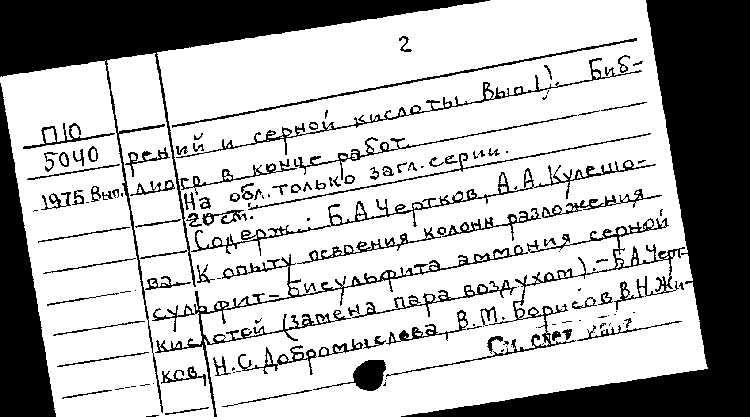 2
П10
5040
1975 Вып.
рений и серной кислоты. Вып.1). Биб-
лиогр в конце работ.
На обл. только загл. серии.
20 см.
Содерж.: Б.А.Чертков, А.А.Кулешо-
ва. К опыту освоения колонн разложения
сульфит-бисульфита аммония серной
кислотой (замена пара воздухом).- Б.А.Черт-
ков, Н.С.Добромыслова, В.М.Борисов, В.Н.Жи-
См.